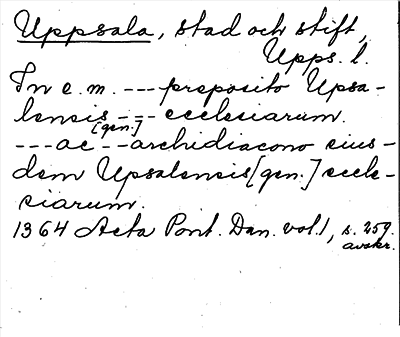 Uppsala, stad och stift,
Upps. l.
In e. m. --- preposito Upsa-
lensis --- ecclesiarum.
[gen.]
--- ac -- archidiacono eius-
dem Upsalensis [gen.] eccle-
siarum.
1364 Acta Pont. Dan. vol. 1, s. 259.
avskr.